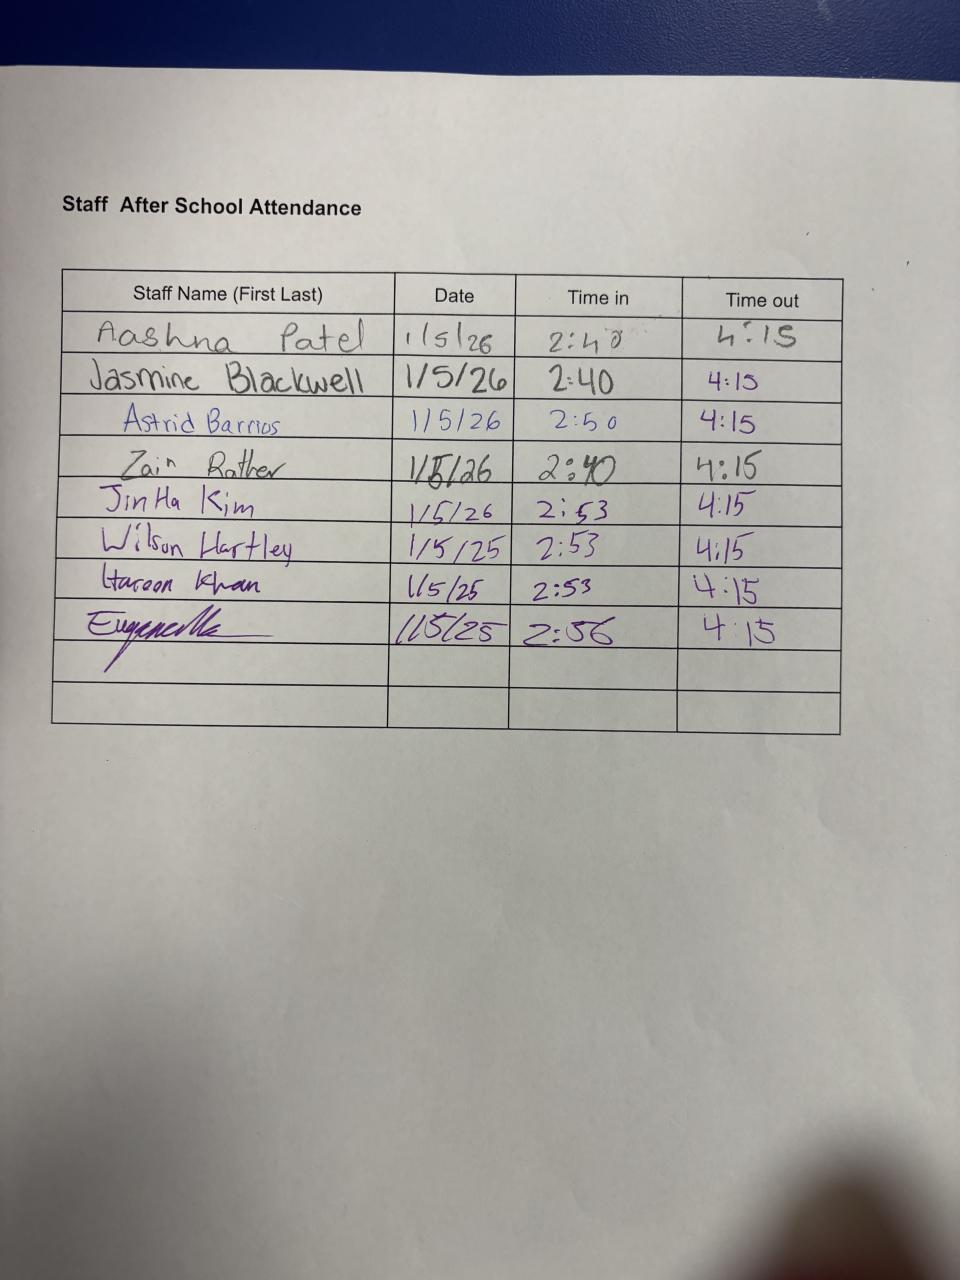 Staff After School Attendance
Staff Name (First Last) Date Time in Time out
Aashna Patel 1/5/26 2:40 4:15
Jasmine Blackwell 1/5/26 2:40 4:15
Astrid Barrios 1/5/26 2:50 4:15
Zain Rather 1/5/26 2:40 4:15
Jin Ha Kim 1/5/26 2:53 4:15
Wilson Hartley 1/5/25 2:53 4:15
Haroon Khan 1/5/25 2:53 4:15
1/5/25 2:56 4:15